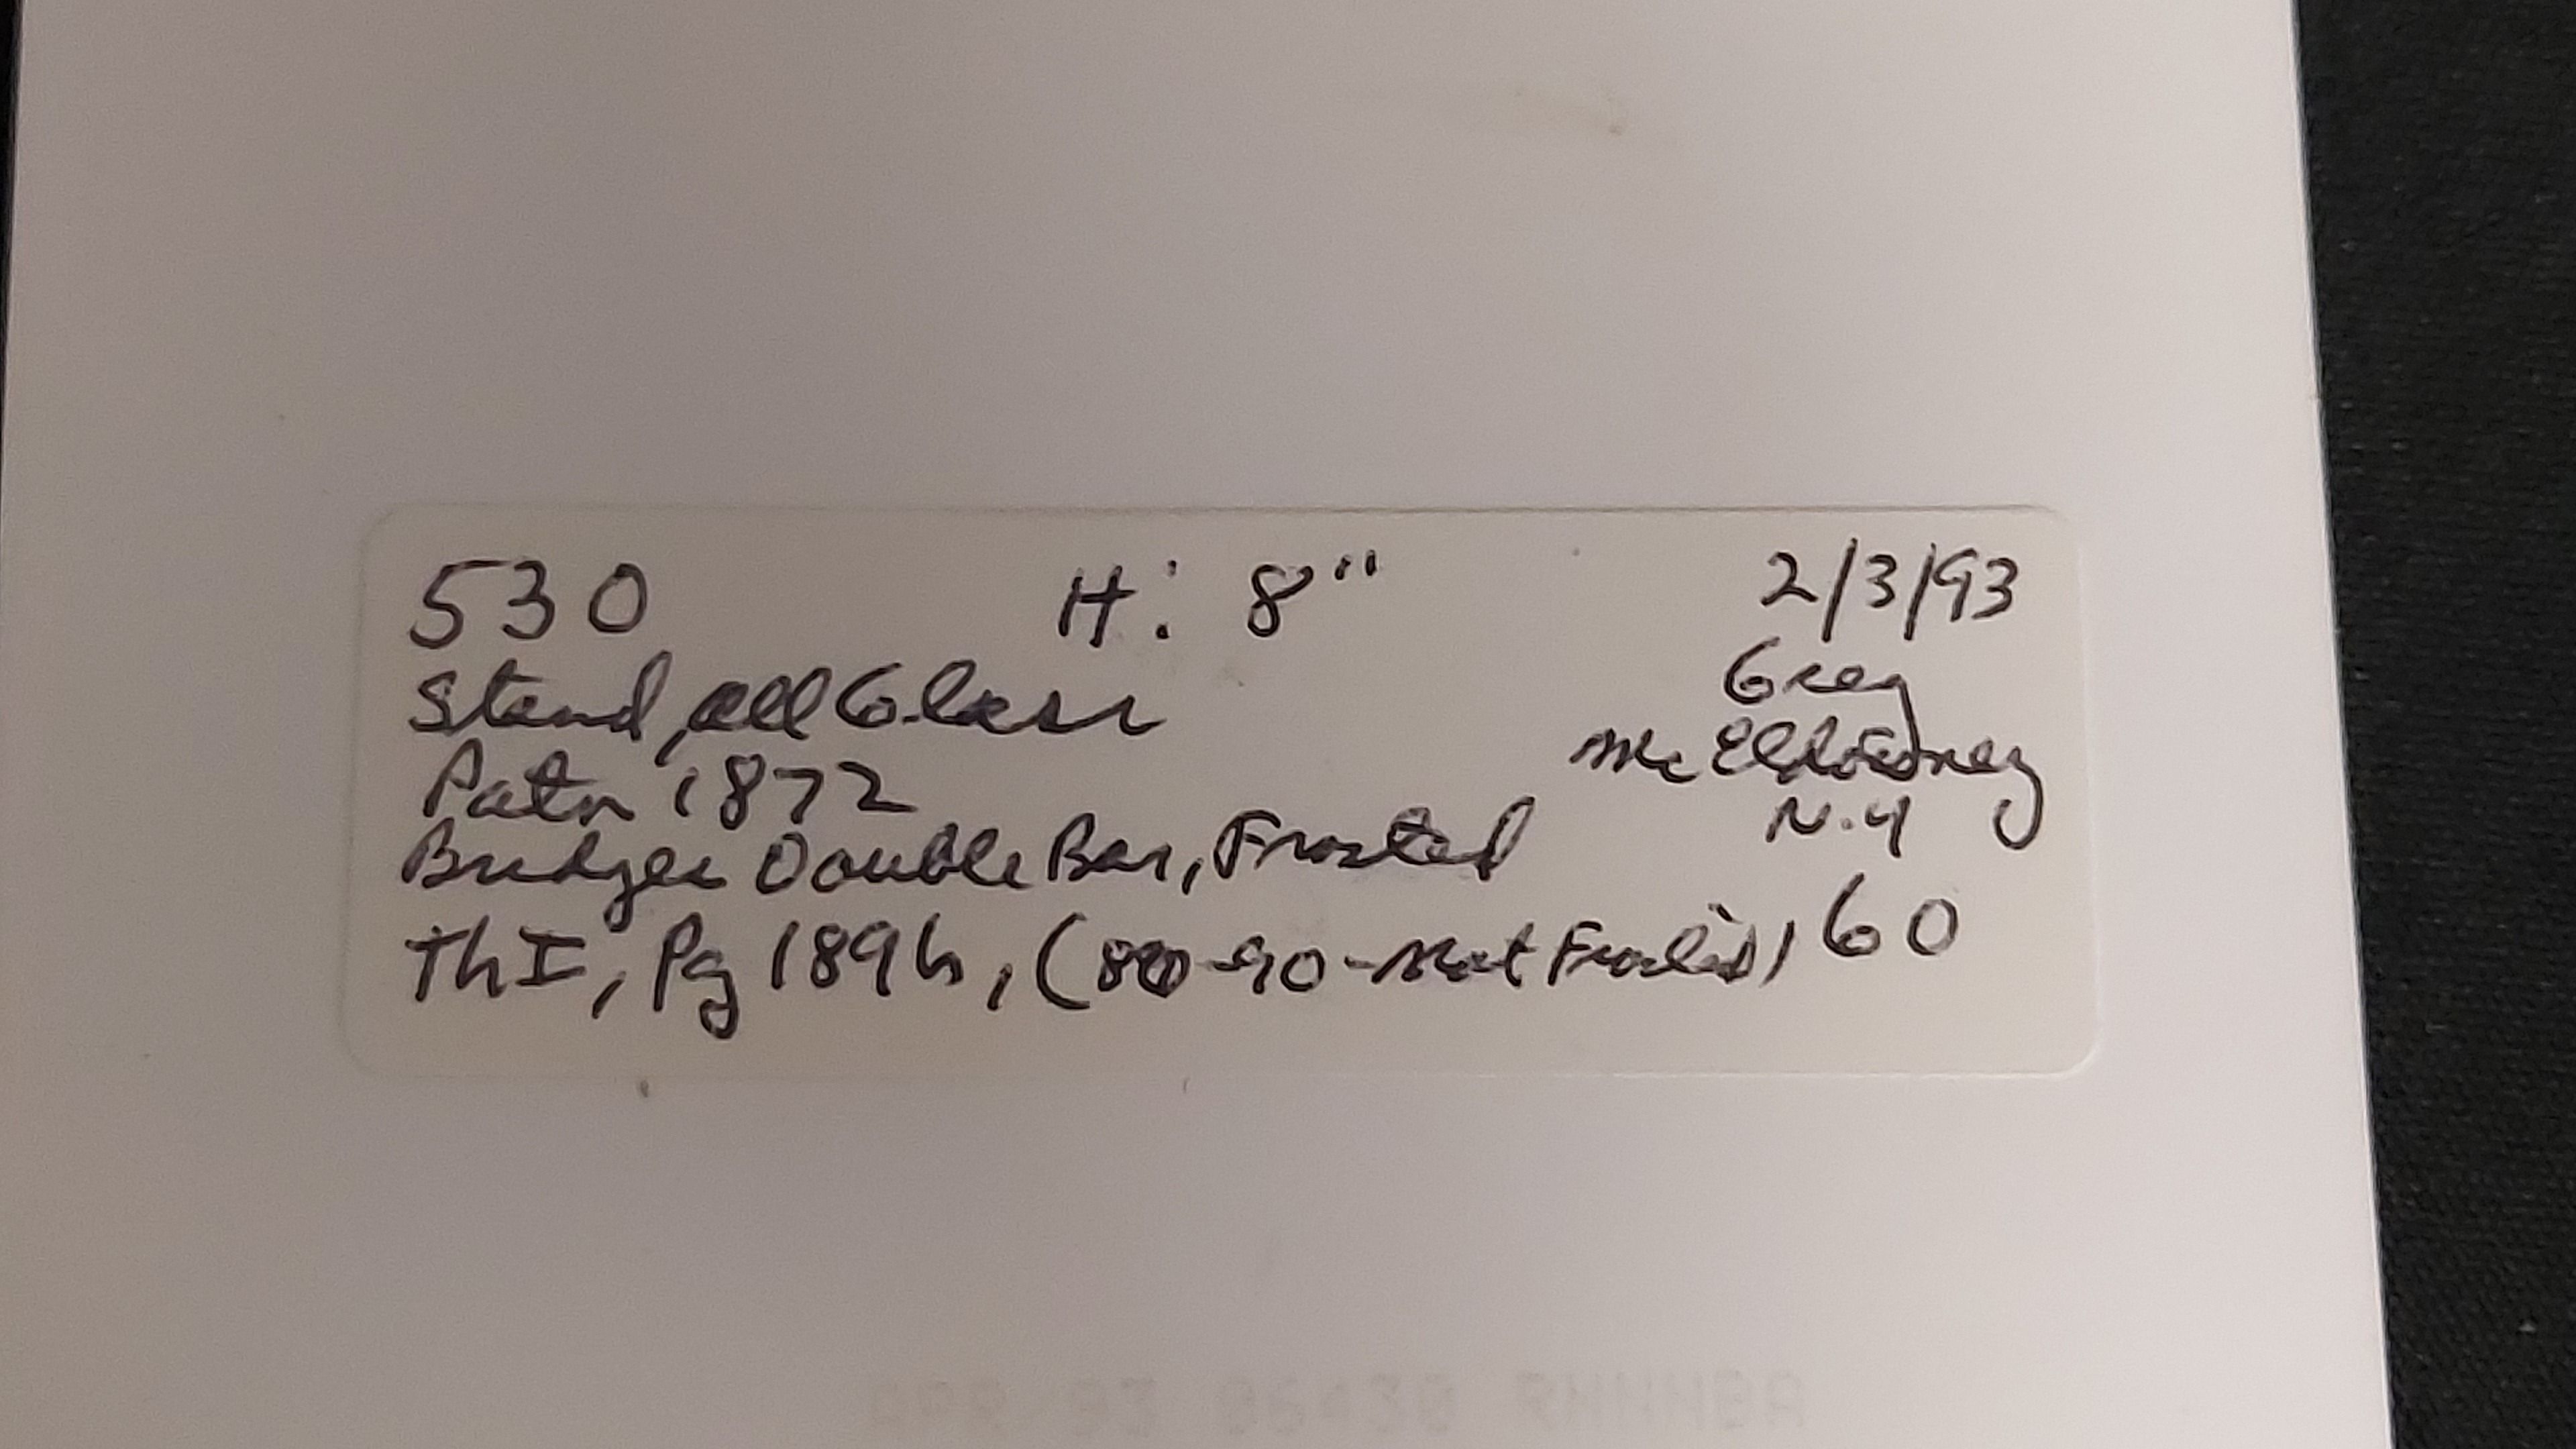 530 H: 8" 2/3/93
Stand, all Glass Greg
Patn 1872 McEldowney
N.Y
Bridges Double Bar, Frosted
Th I, Pg 189 b, (80-90-Not Frosted) 60